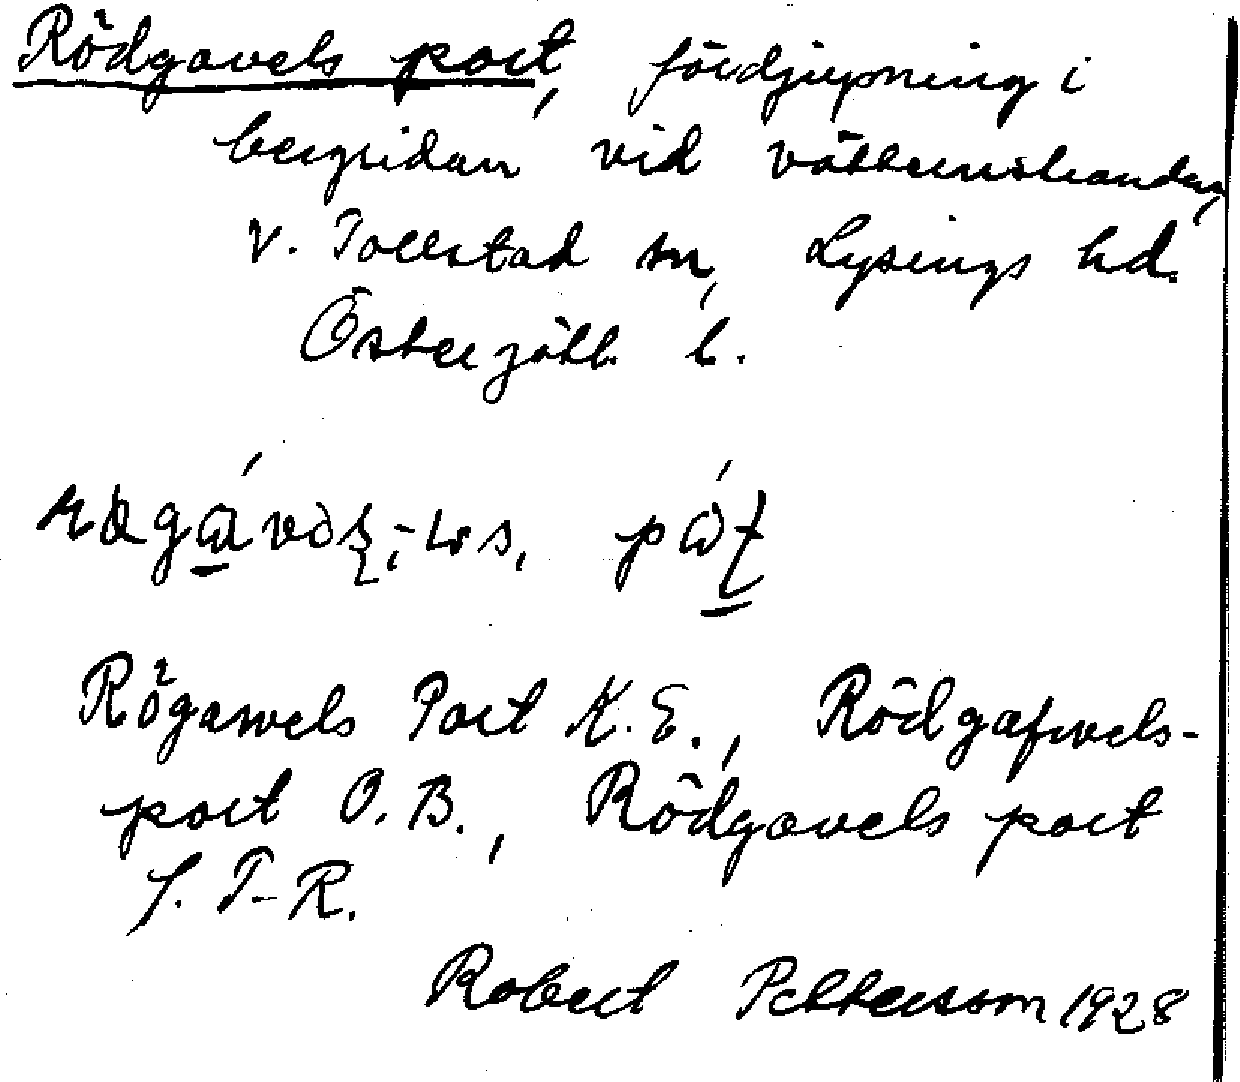 Rödgavels port, fördjupning i
bergsidan vid vätternstranden,
V. Tollstad sn, Lysings hd.
Östergötl. l.
Rögawels Port K.E., Rödgafwels-
port O.B., Rödgavels port
J. T-R.
Robert Pettersson 1928